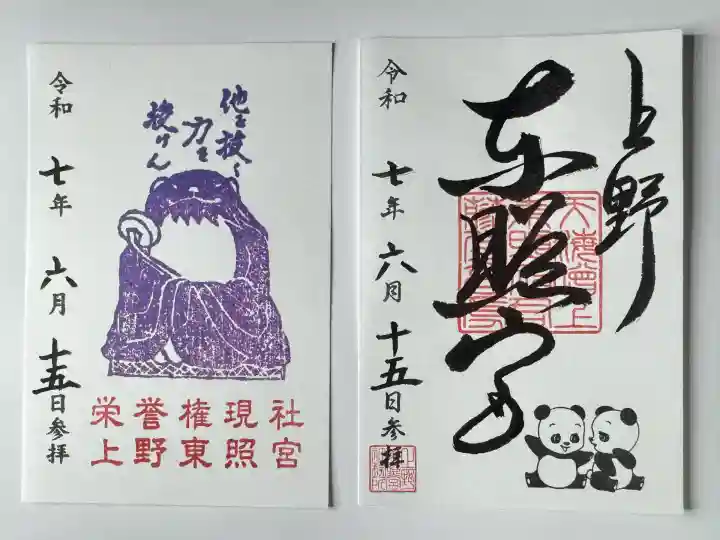 他を抜く
力を
授けん
令和七年六月十五日参拝
栄誉権現社
上野東照宮
上野
東照宮
令和七年六月十五日参拝